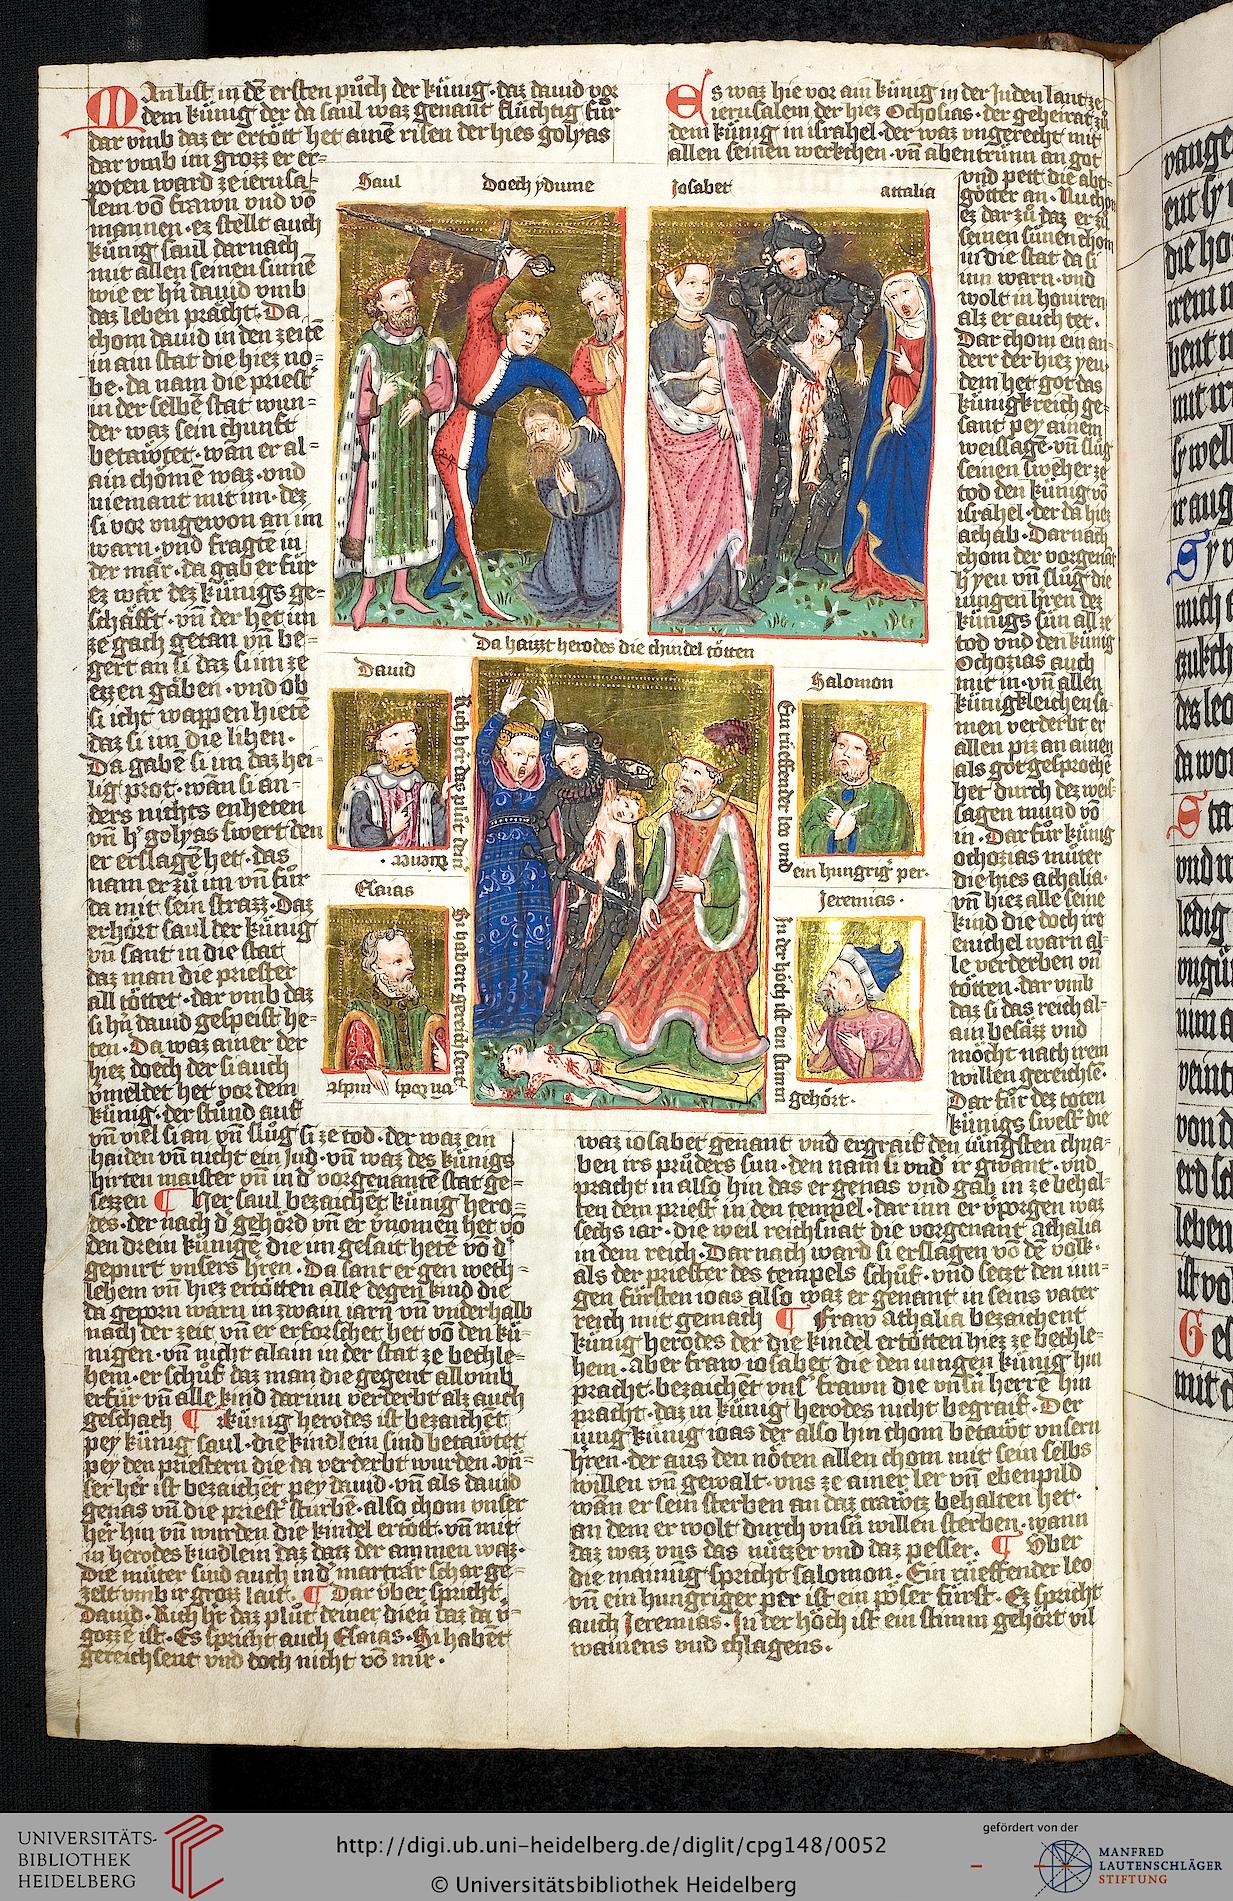 Man list in dē ersten půch der künig · daz dauid vor
dem künig der da saul waz genant flüchtig für
dar vmb daz er ertött het ainē risen der hies golyas
dar vmb im grozz er er-
poten ward ze ierusa-
lem vō frawn vnd vō
mannen · ez stellt auch
künig saul darnach
mit allen seinen sinnē
wie er hn̄ dauid vmb
daz leben prächt · Da
chom dauid in den zeitē
in ain stat die hiez no-
be · da nam die priest
in der selbē stat wun-
der waz sein chunft
betawtet · wan er al-
ain chömē waz · vnd
niemant mit im · dez
si vor vngewon an im
warn · vnd fragtē in
der mär · da gab er für
ez wär dez künigs ge-
schäfft · vn̄ der het im
ze gach getan vn̄ be-
gert an si daz si im ze
ezzen gäben · vnd ob
si icht wappen hietē
daz si im die lihen ·
Da gabē si im daz hei-
lig prot · wān si an-
ders nichts enheten
vn̄ h' golyas swert den
er erslagē het · das
nam er zů im vn̄ für
da mit sein strazz · Daz
erhört saul der künig
vn̄ sant in die stat
daz man die priester
all töttet · dar vmb daz
si hn̄ dauid gespeist he-
ten · Da waz ainer der
hiez doech der si auch
v̄meldet het vor dem
künig · der stůnd auf
vn̄ viel si an vn̄ slůg si ze tod · der waz ein
haiden vn̄ nicht ein Jud · vn̄ waz des künigs
hirten maister vn̄ in d' vorgenantē stat ge-
sezzen ¶ Her saul bezaichet künig hero-
des · der nach d' gehörd vn̄ er v̓nomen het vō
den drein künigē die im gesait hetē vō d'
gepurt vnsers hr̄en · Da sant er gen wech-
lehem vn̄ hiez ertötten alle degen kind die
da geporn warn in zwain iarn vn̄ vnderhalb
nach der zeit vn̄ er erforschet het vō den kü-
nigen · vn̄ nicht alain in der stat ze bethle-
hem · er schůf daz man die gegent allvmb
erfür vn̄ alle kind darinn verderbt alz auch
geschach ¶ Künig herodes ist bezaichēt
pey künig saul · die kindlein sind betawtet
pey den priestern die da verderbt wurden · vn-
ser her ist bezaichet pey dauid · vn̄ als dauid
genas vn̄ die priest' sturbē · also chom vnser
her hin vn̄ wurden die kindel ertött · vn̄ mit
in herodes kindlein daz datz der ammen waz ·
Die můter sind auch in d' marträr schar ge-
zelt vmb ir grozz lait · ¶ Dar über spricht
Dauid · Rich hr̄ daz plůt deiner dien daz da v̓-
gozzē ist · Es spricht auch Esaias · Si habēt
gereichsent vnd doch nicht vō mir ·
Es waz hie vor ain künig in der Juden lant ze
ierusalem der hiez Ochosias · der geheirat zů
dem künig in israhel · der waz vngerecht mit
allen seinen werkchen · vn̄ abentrünn an got
vnd pett die abt-
götter an · Nu chom
ez dar zů daz er zů
seinen sünen chom
in die stat da si
inn warn · vnd
wolt in houiren
alz er auch tet ·
Dar chom ein an-
derr der hiez yeu
dem het got das
künigkreich ge-
sant pey ainem
weissagē · vn̄ slůg
seinen sweher ze
tod den künig vō
israhel · der da hiez
achab · Darnach
chom der vorgenāt
h' yeu vn̄ slůg die
iungen hr̄en dez
künigs sün all ze
tod vnd den künig
Ochozias auch
mit in · vn̄ allen
künigkleichen sa-
men verderbt er
allen piz an ainen
als got gesprochē
het durch dez weis-
sagen mund vō
in · Dar für künig
ochozias můter
die hies athalia ·
vn̄ hiez alle seine
kind die doch ire
enichel warn al-
le verderben vn̄
tötten · dar vmb
daz si das reich al-
ain besäzz vnd
möcht nach irem
willen gereichsē ·
Dar für dez toten
künigs swest' die
waz iosabet genant vnd ergraif den iüngsten chna-
ben irs průders sun · den nam si vnd' ir gwant · vnd
pracht in also hin das er genas vnd gab in ze behal-
ten dem priest' in den tempel · dar inn er v̓porgen waz
sechs iar · die weil reichsnat die vorgenant athalia
in dem reich · Darnach ward si erslagen vō dē volk ·
als der priester des tempels schůf · vnd setzt den iun-
gen fürsten ioas also waz er genant in seins vater
reich mit gemach ¶ Fraw athalia bezaichent
künig herodes der die kindel ertötten hiez ze bethle-
hem · aber fraw iosabet die den iungen künig hin
pracht · bezaichēt vns' frawn die vnsn̄ herrē hin
pracht · daz in künig herodes nicht begraif · Der
iung künig ioas der also hin chom betawt vnsern
hr̄en · der aus den nöten allen chom mit sein selbs
willen vn̄ gewalt · vns ze ainer ler vn̄ ebenpild
wān er sein sterben an daz chrawtz behalten het ·
an dem er wolt durch vnsn̄ willen sterben · wann
daz waz vns das nützer vnd daz pesser · ¶ Über
die mainūg spricht salomon · Ein rüeffender leo
vn̄ ein hungriger per ist ein pöser fürst · Ez spricht
auch Jeremias · In der höch ist ein stimm gehört vil
wainens vnd chlagens ·
Saul
Doech ydume
Josabet
attalia
Da haizzt herodes die chindel tötten
Dauid
Rich her das plůt dein
diener ·
Salomon
Ein rüeffender leo vnd
ein hungrig' per ·
Esaias
Si habent gereichsent
vn̄ doch nicht
Jeremias ·
In der höch ist ein stimm
gehört ·
UNIVERSITÄTS-
BIBLIOTHEK
HEIDELBERG
http://digi.ub.uni-heidelberg.de/diglit/cpg148/0052
© Universitätsbibliothek Heidelberg
gefördert von der
MANFRED
LAUTENSCHLÄGER
STIFTUNG